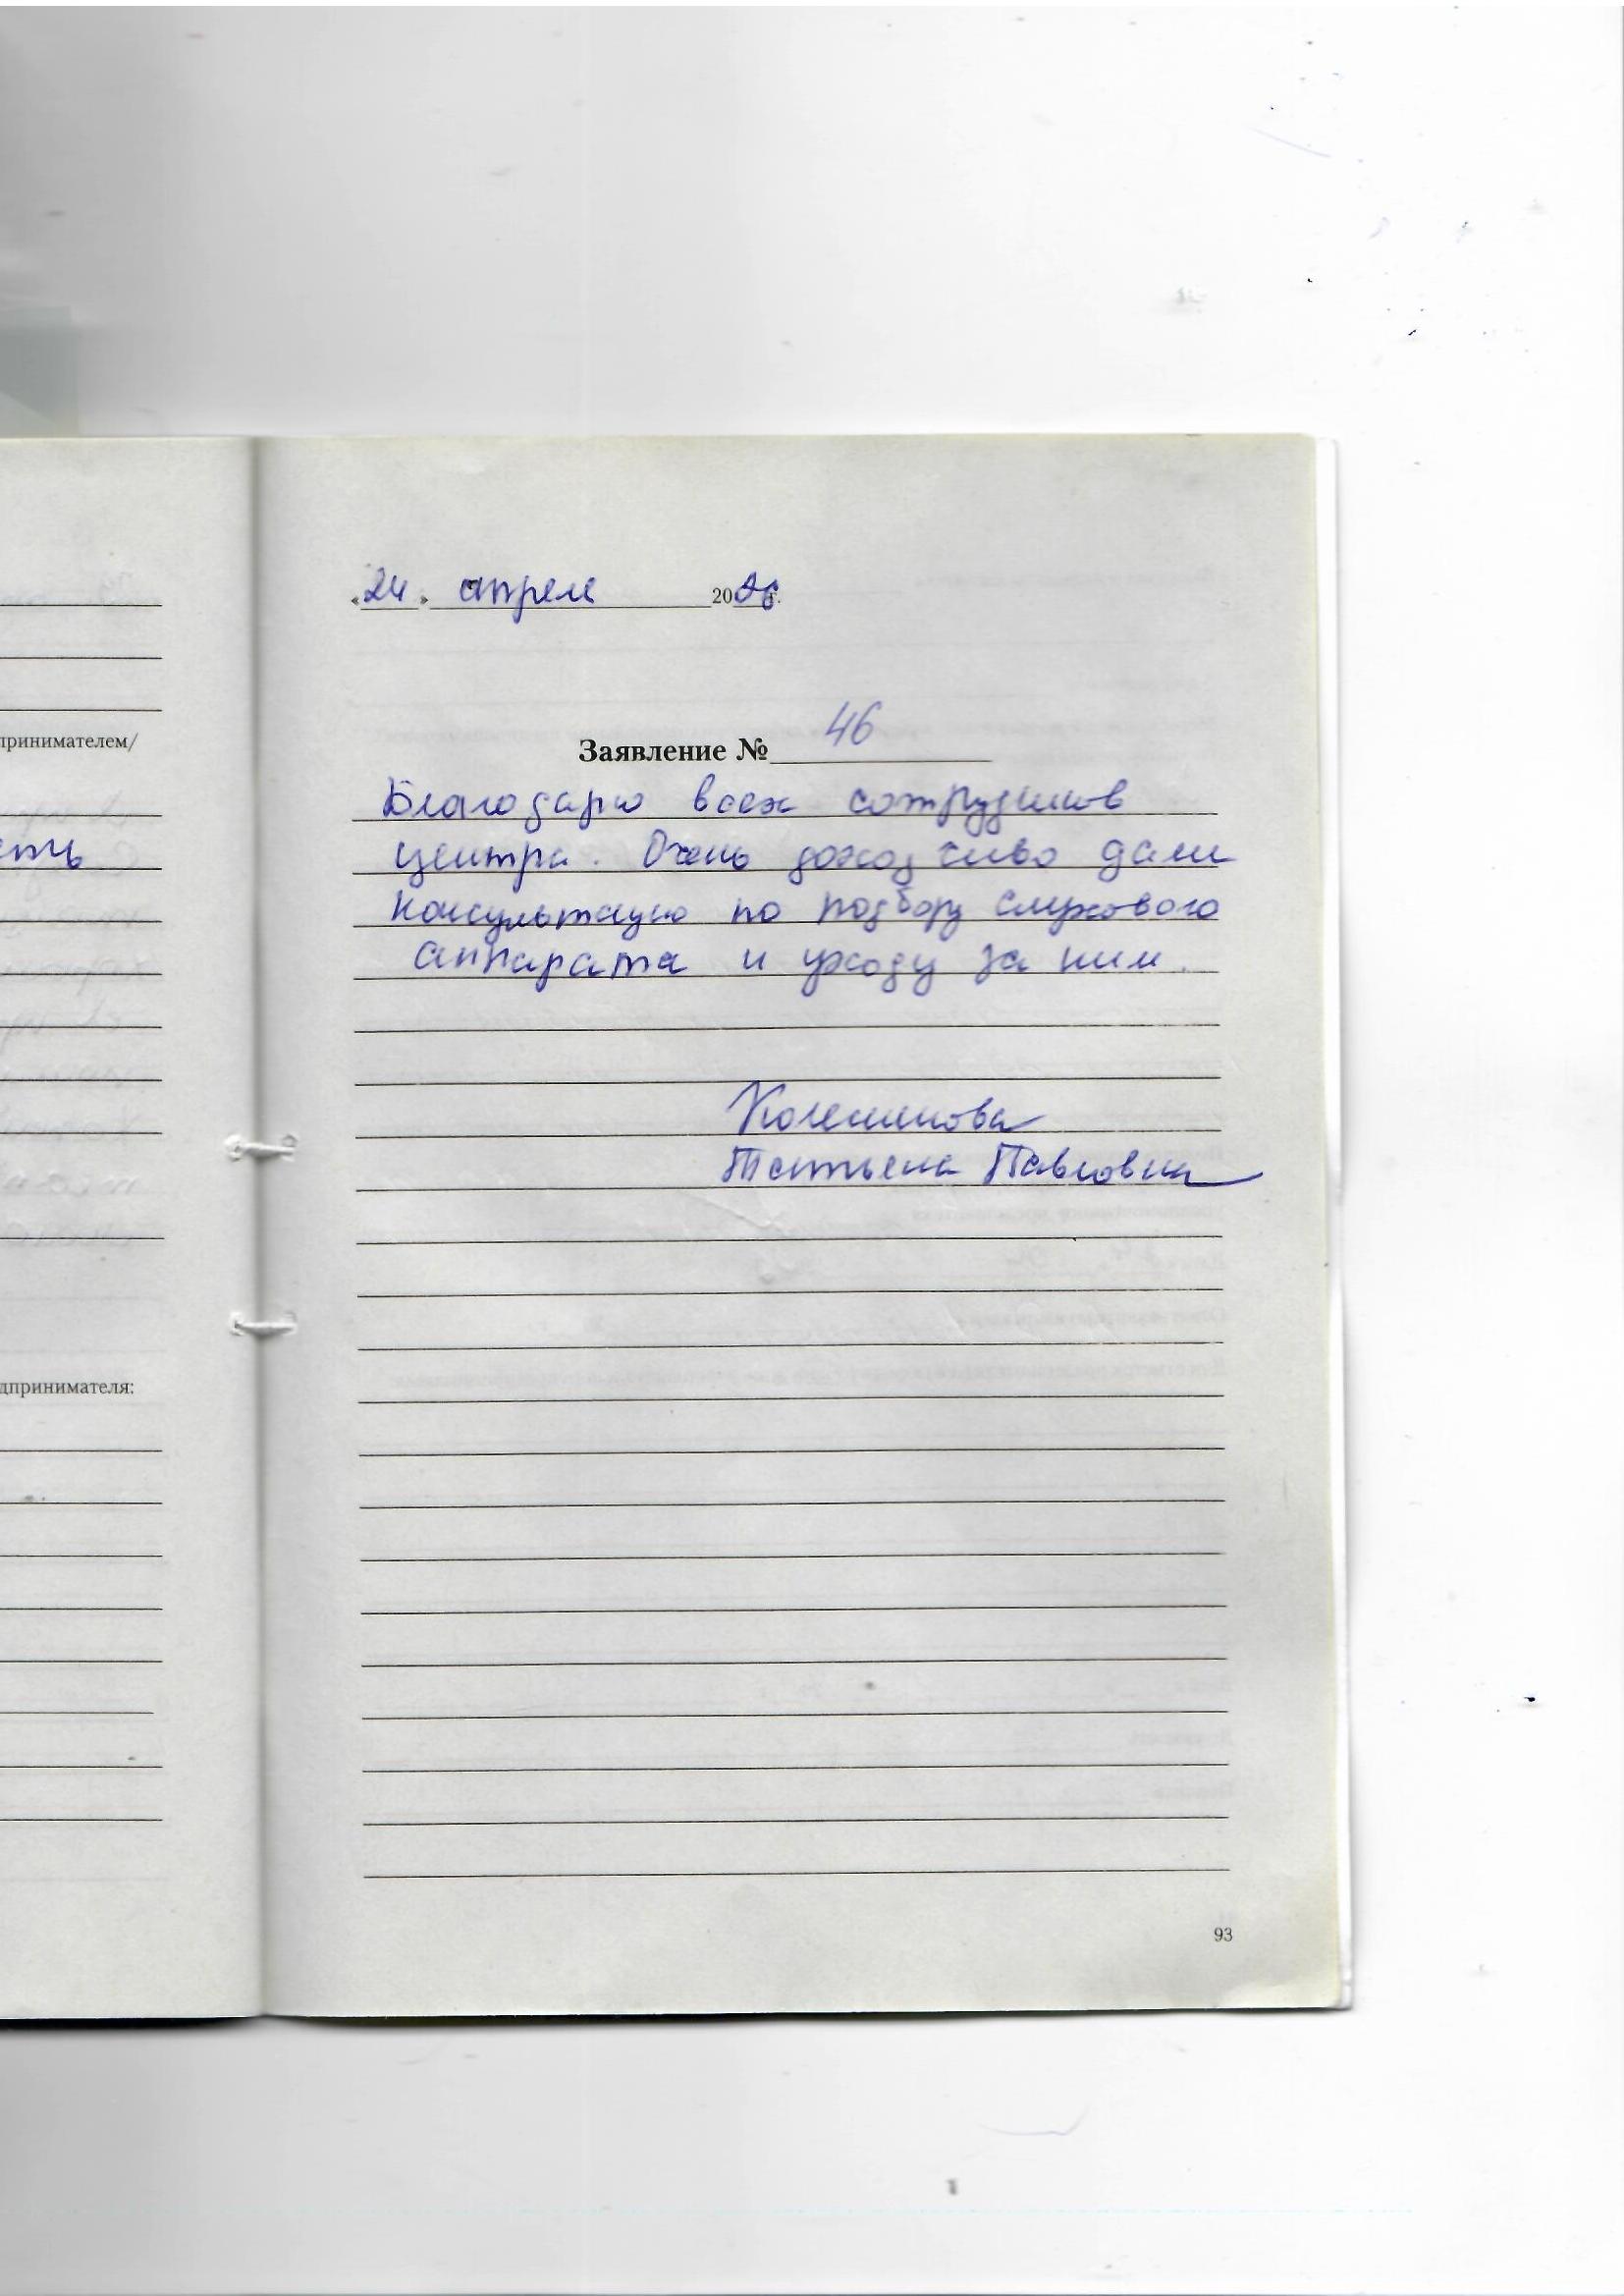 принимателем/
еть
дпринимателя:
«24» апреля 2026 г.
Заявление № 46
Благодарю всех сотрудников
центра. Очень доходчиво дали
консультацию по подбору слухового
аппарата и уходу за ним.
Колесникова
Татьяна Павловна
93